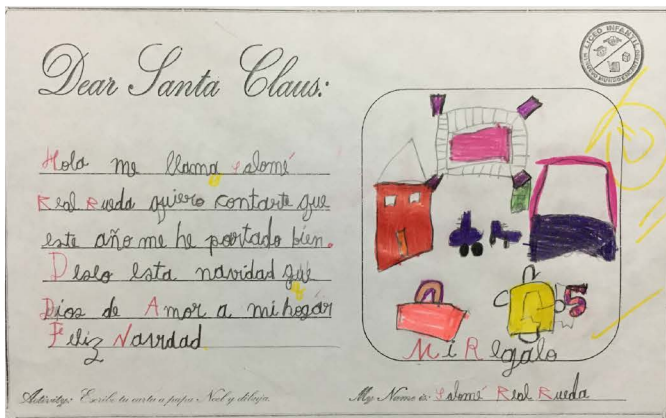 Dear Santa Claus:
Hola me llama Salomé
Real Rueda quiero contarte que
este año me he portado bien.
Deseo esta navidad que
Dios de Amor a mi hogar
Feliz Navidad
LICEO INFANTIL
5
Mi Regalo
Activity: Escribe tu carta a papa Noel y dibuja.
My Name is: Salomé Real Rueda